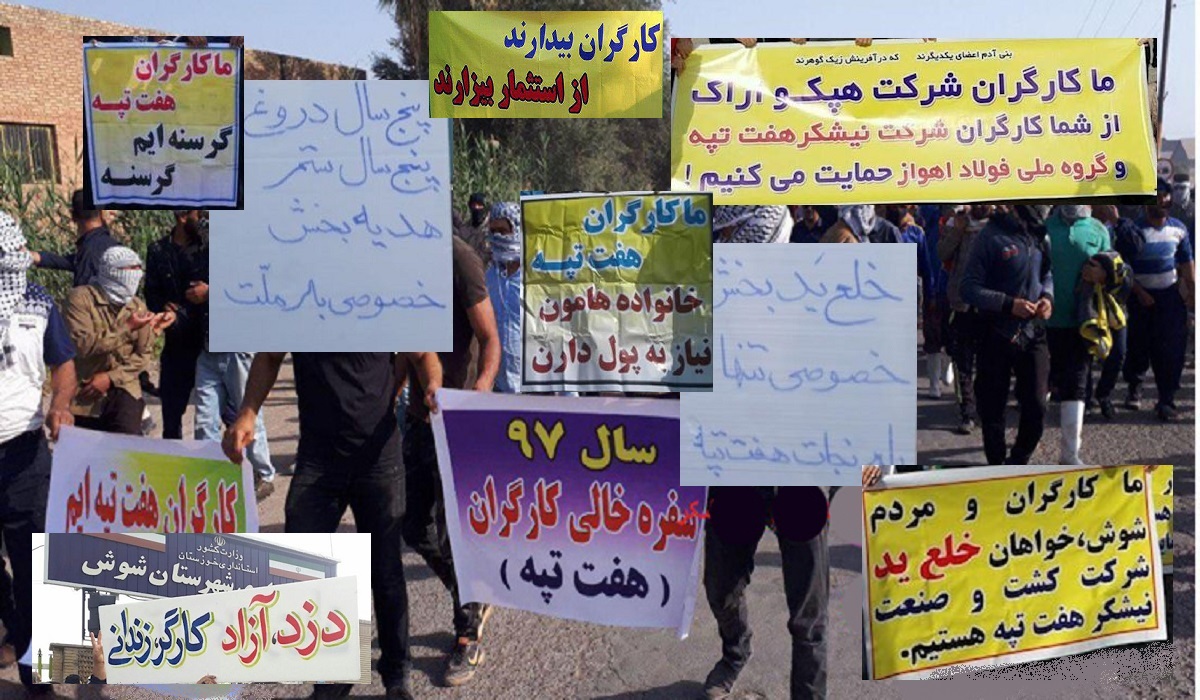 ما کارگران
هفت تپه
گرسنه ایم
گرسنه
کارگران بیدارند
از استثمار بیزارند
بنی آدم اعضای یکدیگرند که در آفرینش زیک گوهرند
ما کارگران شرکت هپکو اراک
از شما کارگران شرکت نیشکر هفت تپه
و گروه ملی فولاد اهواز حمایت می کنیم !
پنج سال دروغ
پنج سال ستم
هدیه بخش
خصوصی به ملّت
ما کارگران
هفت تپه
خانواده هامون
نیاز به پول دارن
خلع ید بخش
خصوصی تنها
راه نجات هفت تپه
سال ۹۷
سفره خالی کارگران
( هفت تپه )
کارگران هفت تپه ایم
وزارت کشور
استانداری خوزستان
شهرستان شوش
دزد، آزاد کارگر، زندانی
ما کارگران و مردم
شوش، خواهان خلع ید
شرکت کشت و صنعت
نیشکر هفت تپه هستیم.